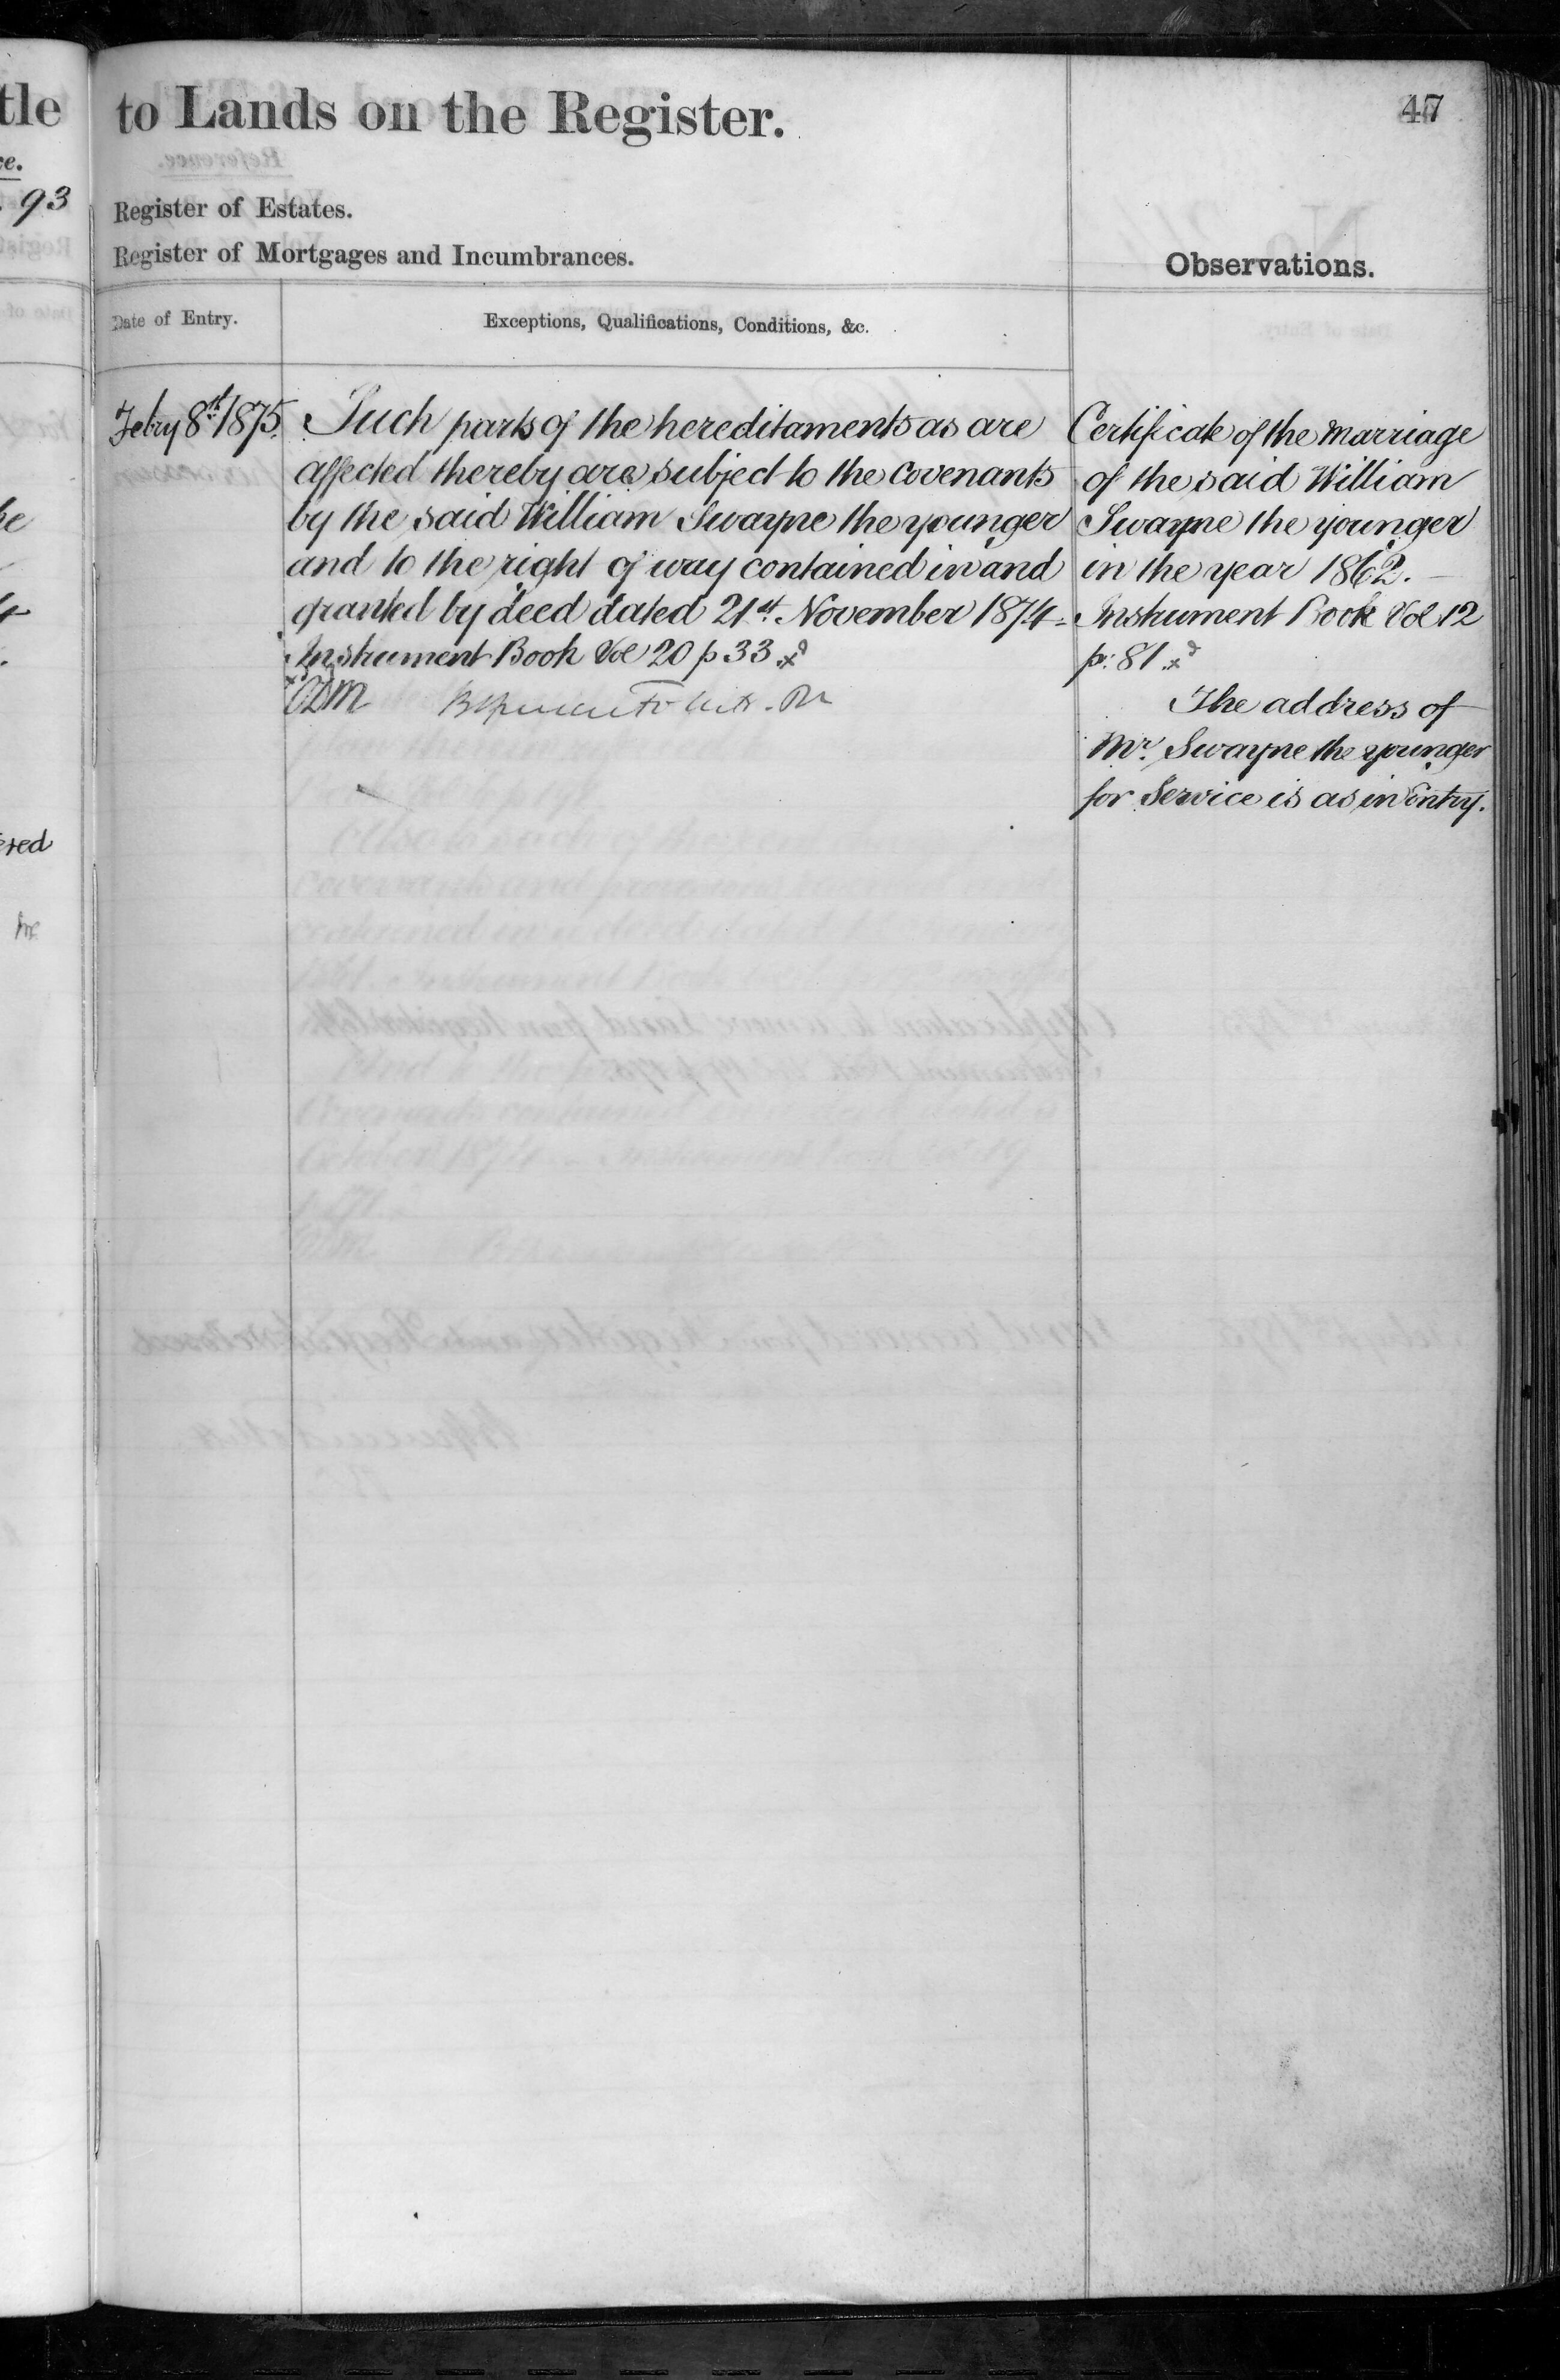 tle
to Lands on the Register.
47
ce.
93
Register of Estates.
Register of Mortgages and Incumbrances.
Observations.
Date of Entry.
Exceptions, Qualifications, Conditions, &c.
Febry 8th 1875.
Such parts of the hereditaments as are
affected thereby are subject to the covenants
by the said William Swayne the younger
and to the right of way contained in and
granted by deed dated 21st November 1874
Instrument Book Vol 20 p 33
Certificate of the Marriage
of the said William
Swayne the younger
in the year 1862.
Instrument Book Vol 12
p: 81
The address of
Mr. Swayne the younger
for Service is as in Entry.